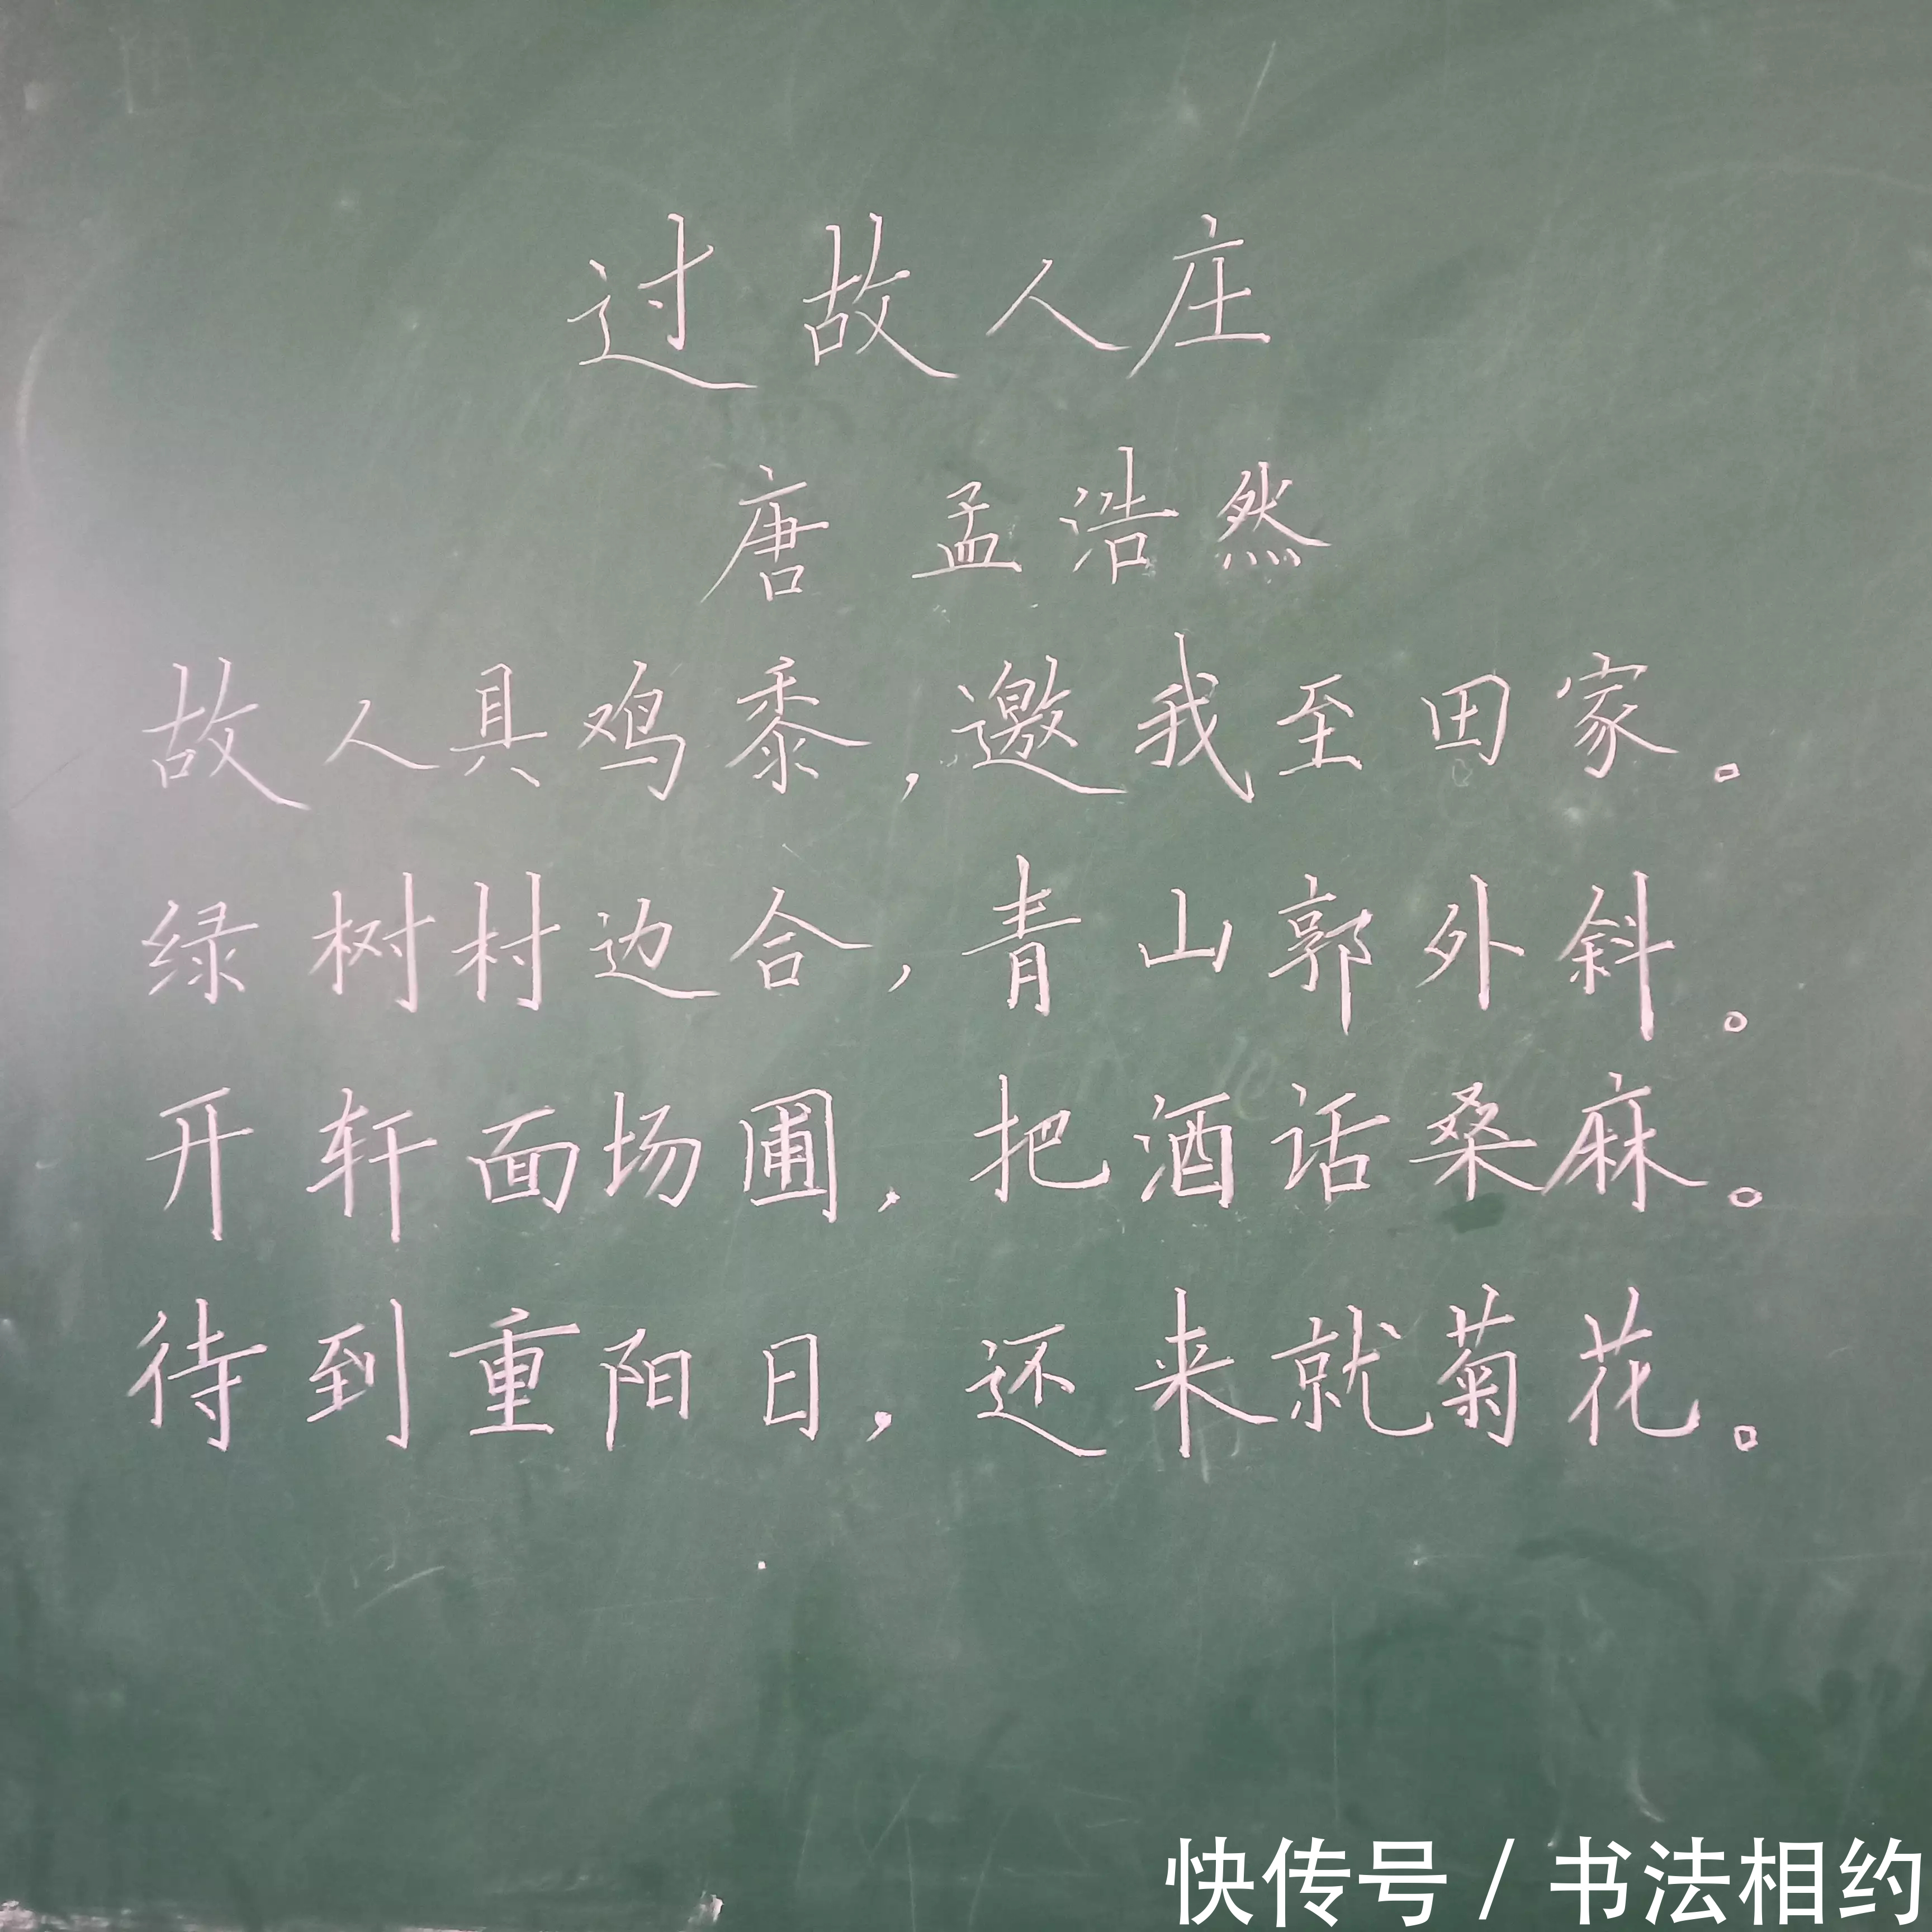 过故人庄
唐 孟浩然
故人具鸡黍,邀我至田家。
绿树村边合,青山郭外斜。
开轩面场圃,把酒话桑麻。
待到重阳日,还来就菊花。
快传号 / 书法相约